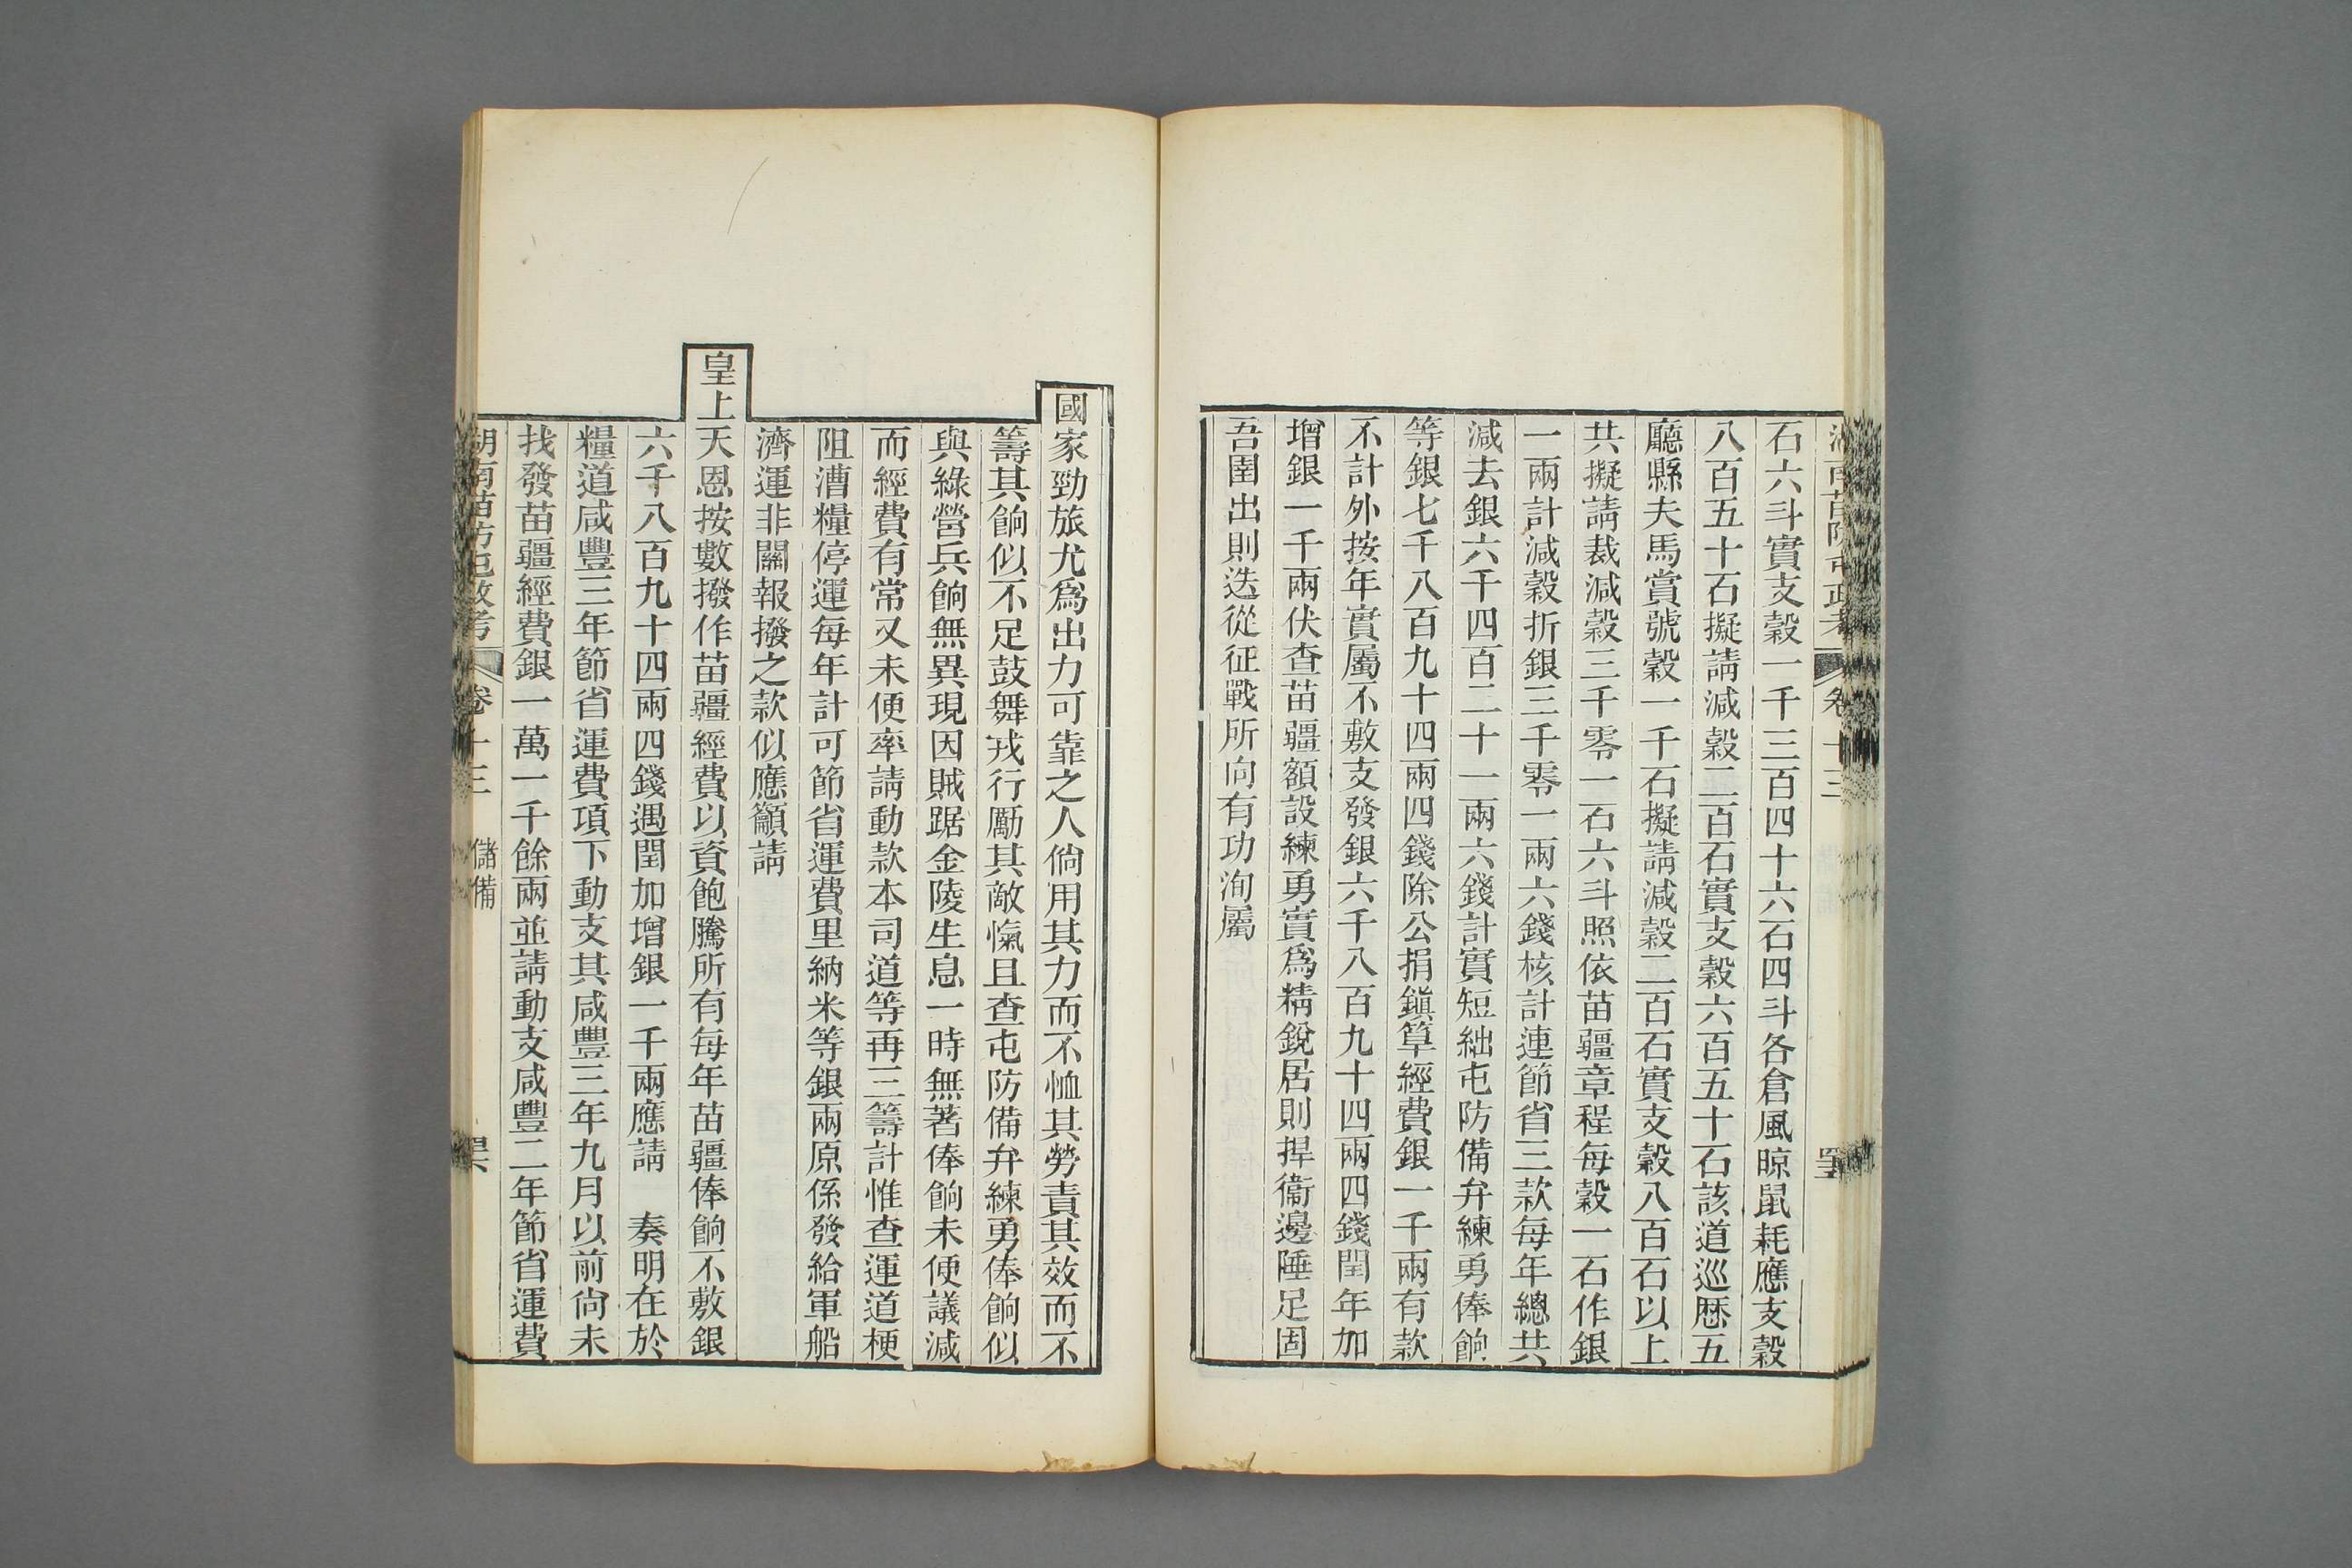 湖南苗防屯政考 卷十三
石六斗實支穀一千三百四十六石四斗各倉風晾鼠耗應支穀
八百五十石擬請減穀二百石實支穀六百五十石該道巡歷五
廳縣夫馬賞號穀一千石擬請減穀二百石實支穀八百石以上
共擬請裁減穀三千零一石六斗照依苗疆章程每穀一石作銀
一兩計減穀折銀三千零一兩六錢核計連節省三款每年總共
減去銀六千四百二十一兩六錢計實短絀屯防備弁練勇俸餉
等銀七千八百九十四兩四錢除公捐鎭筸經費銀一千兩有款
不計外按年實屬不敷支發銀六千八百九十四兩四錢閏年加
增銀一千兩伏查苗疆額設練勇實爲精銳居則捍衞邊陲足固
吾圉出則迭從征戰所向有功洵屬
國家勁旅尤爲出力可靠之人倘用其力而不恤其勞責其效而不
籌其餉似不足鼓舞戎行勵其敵愾且查屯防備弁練勇俸餉似
與綠營兵餉無異現因賊踞金陵生息一時無著俸餉未便議減
而經費有常又未便率請動款本司道等再三籌計惟查運道梗
阻漕糧停運每年計可節省運費里納米等銀兩原係發給軍船
濟運非關報撥之款似應籲請
皇上天恩按數撥作苗疆經費以資飽騰所有每年苗疆俸餉不敷銀
六千八百九十四兩四錢遇閏加增銀一千兩應請 奏明在於
糧道咸豐三年節省運費項下動支其咸豐三年九月以前尙未
找發苗疆經費銀一萬一千餘兩並請動支咸豐二年節省運費
湖南苗防屯政考 卷十三 儲備